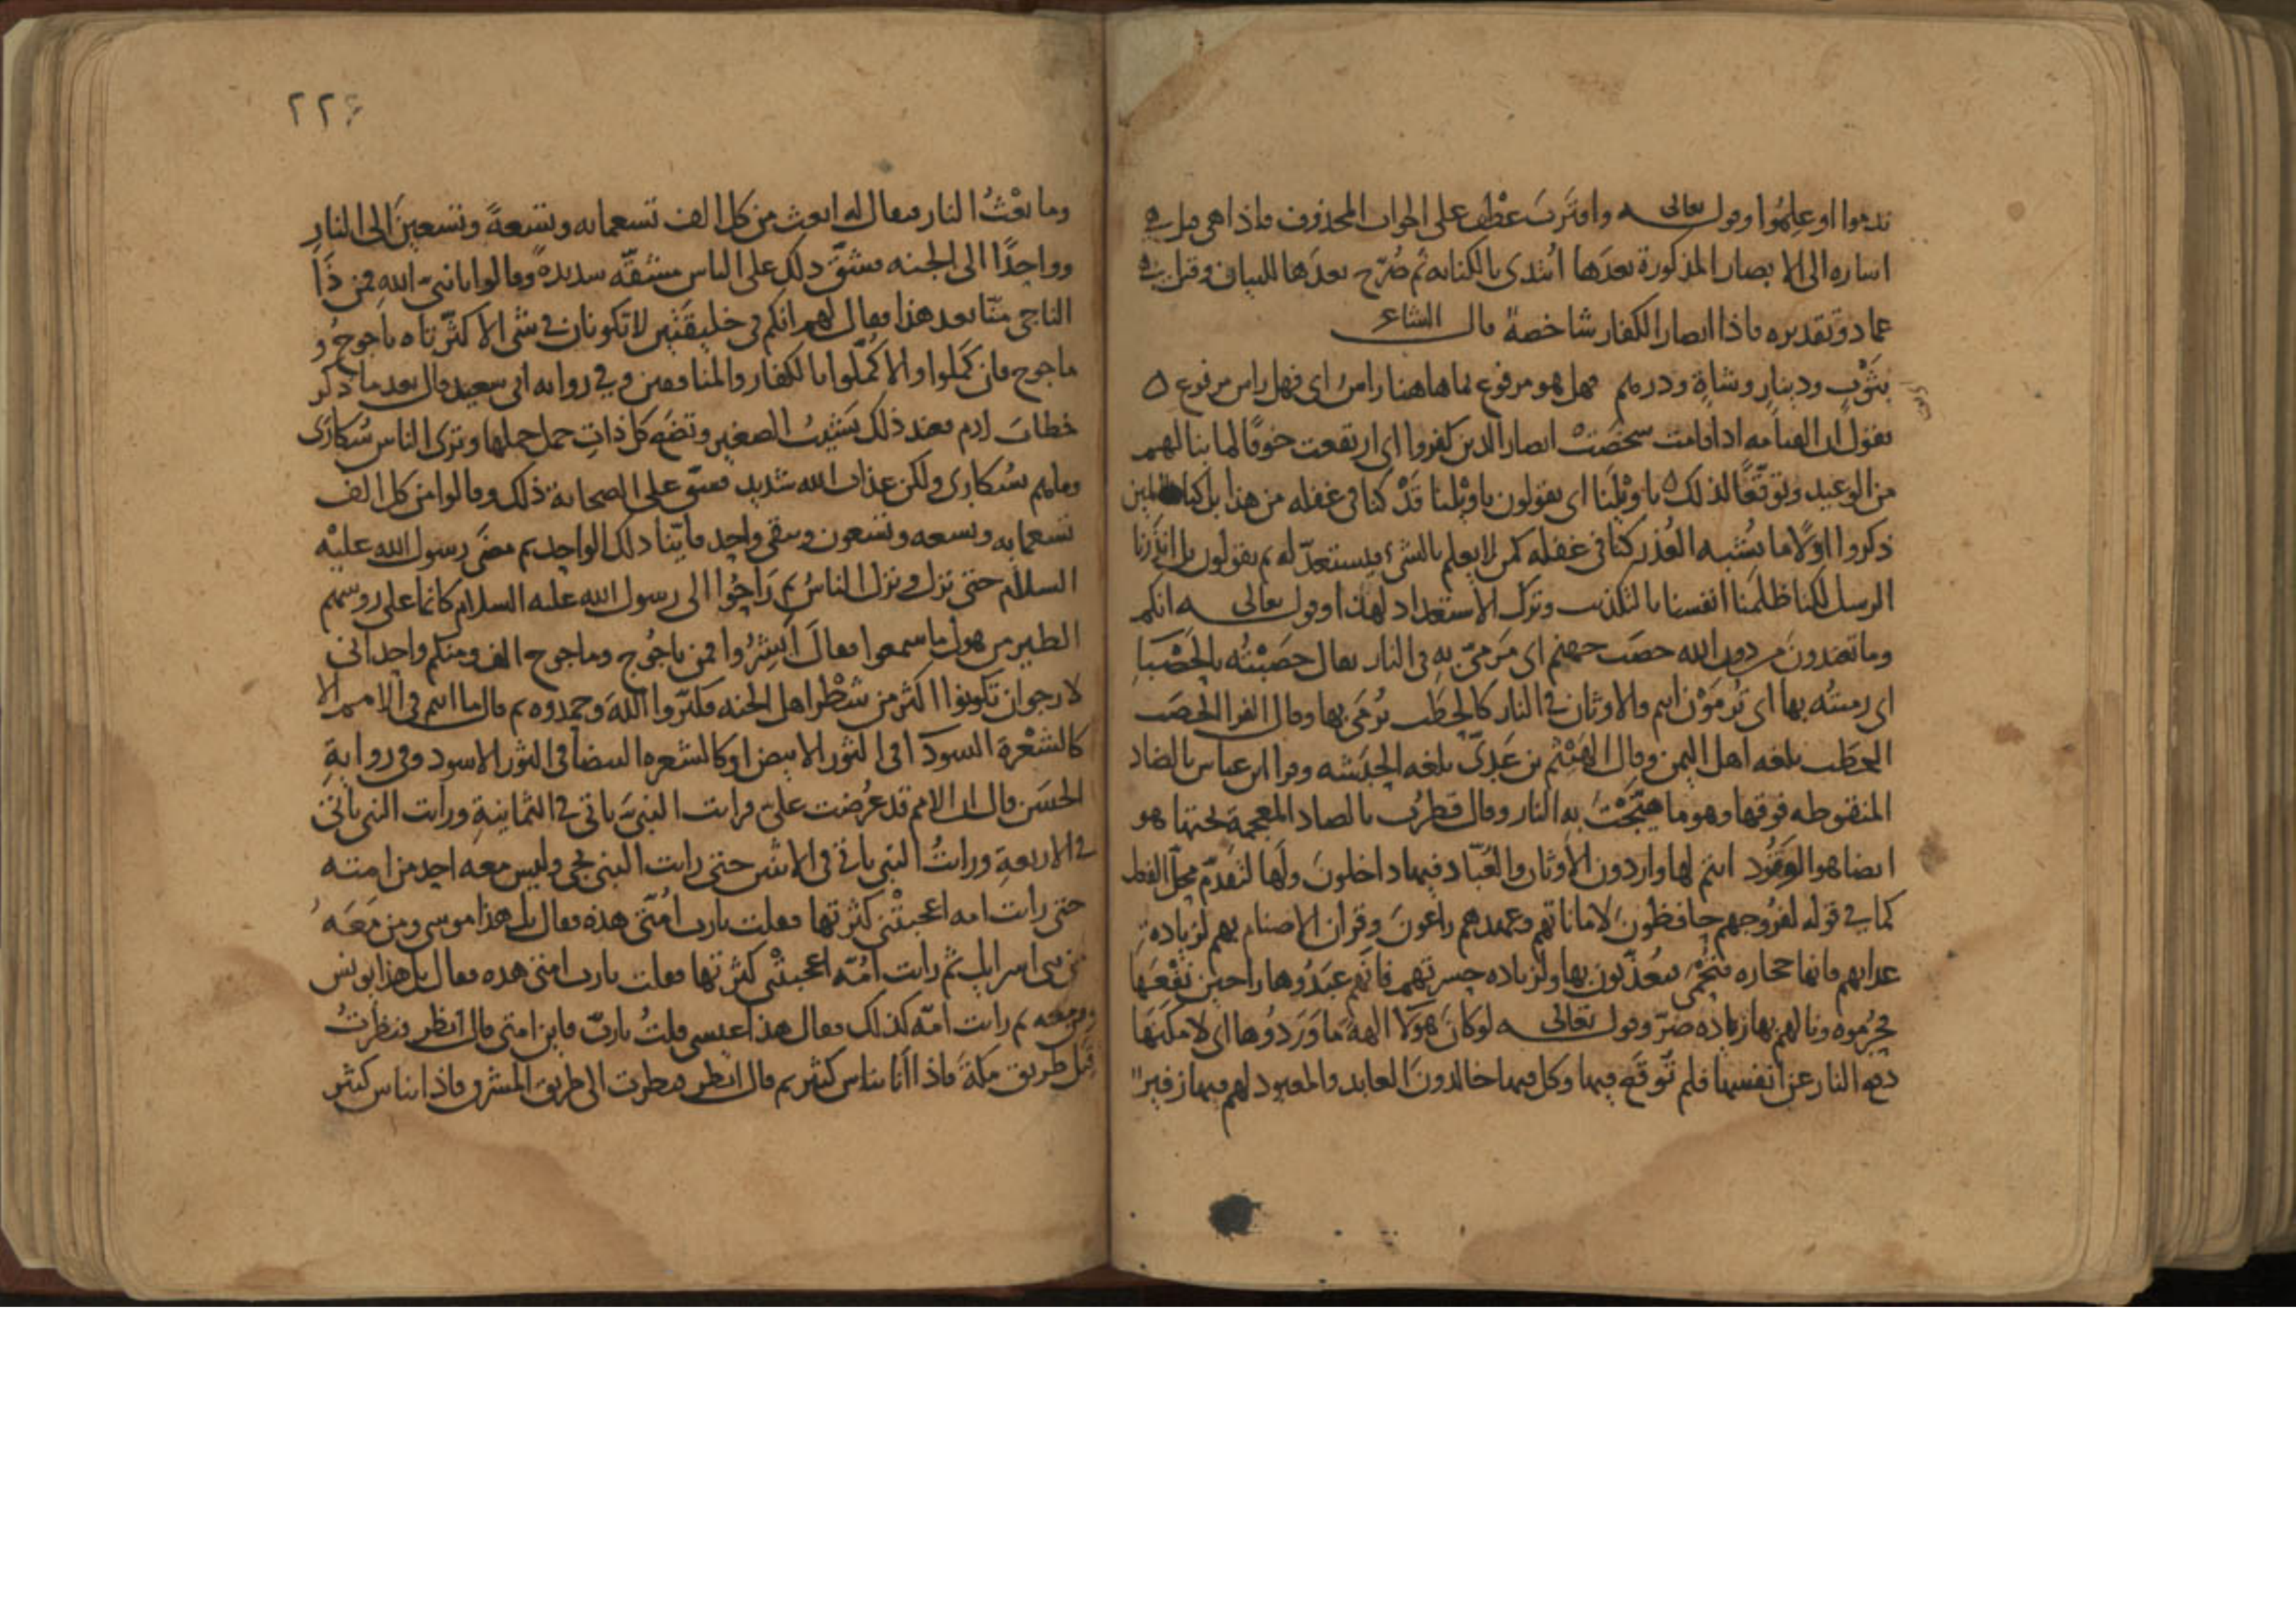 ندموا او علموا وقوله تعالى واقترب عطف على الجواب المحذوف فاذا هي قيل هي
اشارة الى الابصار المذكورة بعدها ابتدى بالكناية ثم صرح بعدها للبيان وقيل هي
عماد وتقديره فاذا ابصار الكفار شاخصة قال الشاعر
بثوب ودينار وشاة ودرهم فهل هو مرفوع بما هاهنا راس اى فهل راس مرفوع ه
يقول ان القيامة اذا قامت شخصت ابصار الذين كفروا اى ارتفعت خوفا لما ينالهم
من الوعيد وتوقعا لذلك ه يا ويلنا اى يقولون يا ويلنا قد كنا في غفلة من هذا بل كنا ظالمين
ذكروا اولا ما يشبه العذر كنا في غفلة كمن لا يعلم بالشيء فيستعد له ثم يقولون بل انذرنا
الرسل لكنا ظلمنا انفسنا بالتكذيب وترك الاستعداد لهذا وقوله تعالى انكم
وما تعبدون من دون الله حصب جهنم اى مرمي به في النار يقال حصبته بالحصباء
اى رميته بها اى ترمون انتم والاوثان في النار كالحطب يرمى بها وقال الفرا الحصب
الحطب بلغة اهل اليمن وقال الهيثم بن عدي بلغة الحبشة وقرا ابن عباس بالضاد
المنقوطة فوقها وهو ما هيجت به النار وقال قطرب بالصاد المعجمة تحتها هو
ايضا هو الوقود انتم لها واردون الاوثان والعباد فيها داخلون ولها لتقدم محل الفعل
كما في قوله لفروجهم حافظون لاماناتهم وعهدهم راعون وقران الاصنام بهم لزيادة
عذابهم فانها حجارة تحمى فيعذبون بها ولزيادة حسرتهم فانهم عبدوها راجين نفعها
فحرموه ونالهم بها زيادة ضر وقوله تعالى لو كان هولا الهة ما وردوها اى لامكنها
دفع النار عن انفسها فلم توقع فيها وكل فيها خالدون العابد والمعبود لهم فيها زفير
٢٢٤
وما بعث النار فيقال له ابعث من كل الف تسعمائة وتسعة وتسعين الى النار
وواحدا الى الجنة فشق ذلك على الناس مشقة شديدة وقالوا يا نبي الله فمن ذا
الناجي منا بعد هذا فقال لهم انكم في خليقتين لا تكونان في شي الا كثرتاه ياجوج و
ماجوج فان كملوا والا كملوا بالكفار والمنافقين وفي رواية ابي سعيد قال بعد ما ذكر
خطاب ادم فعند ذلك يشيب الصغير وتضع كل ذات حمل حملها وترى الناس سكارى
وما هم بسكارى ولكن عذاب الله شديد فشق على الصحابة ذلك وقالوا من كل الف
تسعمائة وتسعة وتسعون ويبقى واحد فاينا ذلك الواحد ثم مضى رسول الله عليه
السلام حتى نزل ونزل الناس ثم راحوا الى رسول الله عليه السلام كانما على روسهم
الطير من هول ما سمعوا فقال ابشروا فمن ياجوج وماجوج الف ومنكم واحد اني
لارجو ان تكونوا اكثر من شطر اهل الجنة فكبروا الله وحمدوه ثم قال ما انتم في الامم الا
كالشعرة السوداء في الثور الابيض او كالشعرة البيضا في الثور الاسود وفي رواية
الحسن قال ان الامم قد عرضت علي فرايت النبي ياتي في الثمانية ورايت النبي ياتي
في الاربعة ورايت النبي ياتي في الاثنين حتى رايت النبي يجي وليس معه احد من امته
حتى رايت امة اعجبتني كثرتها فقلت يا رب امتي هذه فقال بل هذا موسى ومن معه
من بني اسرايل ثم رايت امة اعجبتني كثرتها فقلت يا رب امتي هذه فقال بل هذا يونس
ومن معه ثم رايت امة كذلك فقال هذا عيسى قلت يا رب فاين امتي قال انظر فنظرت
قبل طريق مكة فاذا انا بناس كثير ثم قال انظر فنظرت الى طريق المشرق فاذا بناس كثير